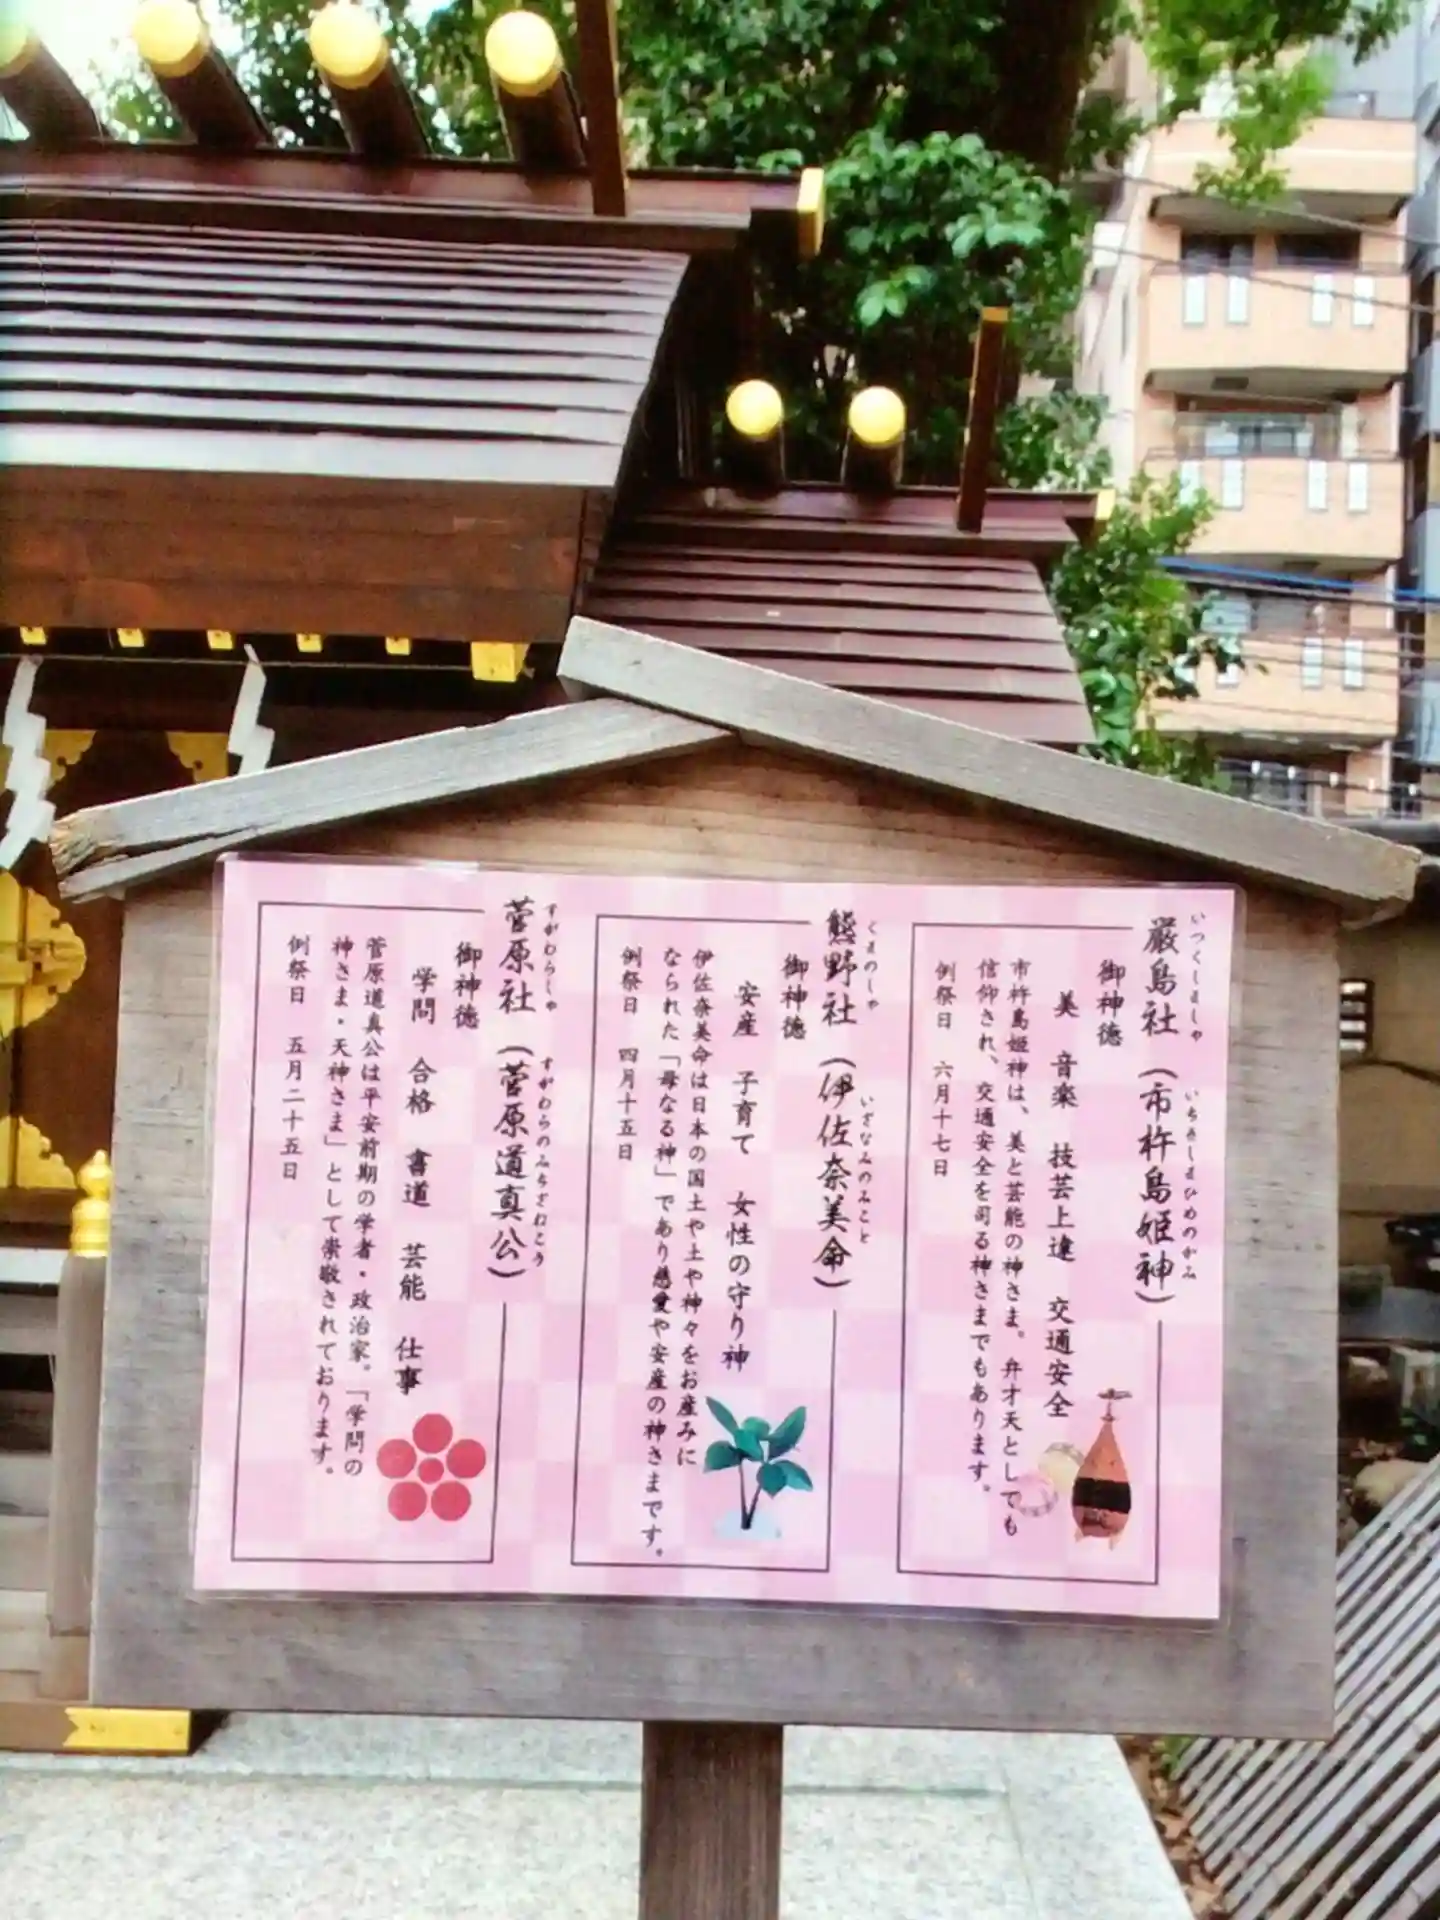 厳島社（市杵島姫神）
いつくしましゃ
いちきしまひめのかみ
御神徳
美　音楽　技芸上達　交通安全
市杵島姫神は、美と芸能の神さま。弁才天としても
信仰され、交通安全を司る神さまでもあります。
例祭日　六月十七日
熊野社（伊佐奈美命）
くまのしゃ
いざなみのみこと
御神徳
安産　子育て　女性の守り神
伊佐奈美命は日本の国土や土や神々をお産みに
なられた「母なる神」であり慈愛や安産の神さまです。
例祭日　四月十五日
菅原社（菅原道真公）
すがわらしゃ
すがわらのみちざねこう
御神徳
学問　合格　書道　芸能　仕事
菅原道真公は平安前期の学者・政治家。「学問の
神さま・天神さま」として崇敬されております。
例祭日　五月二十五日